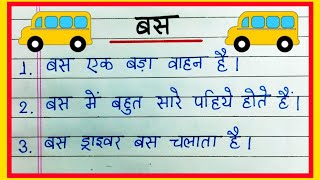 बस
1. बस एक बड़ा वाहन है।
2. बस में बहुत सारे पहिये होते हैं।
3. बस ड्राइवर बस चलाता है।